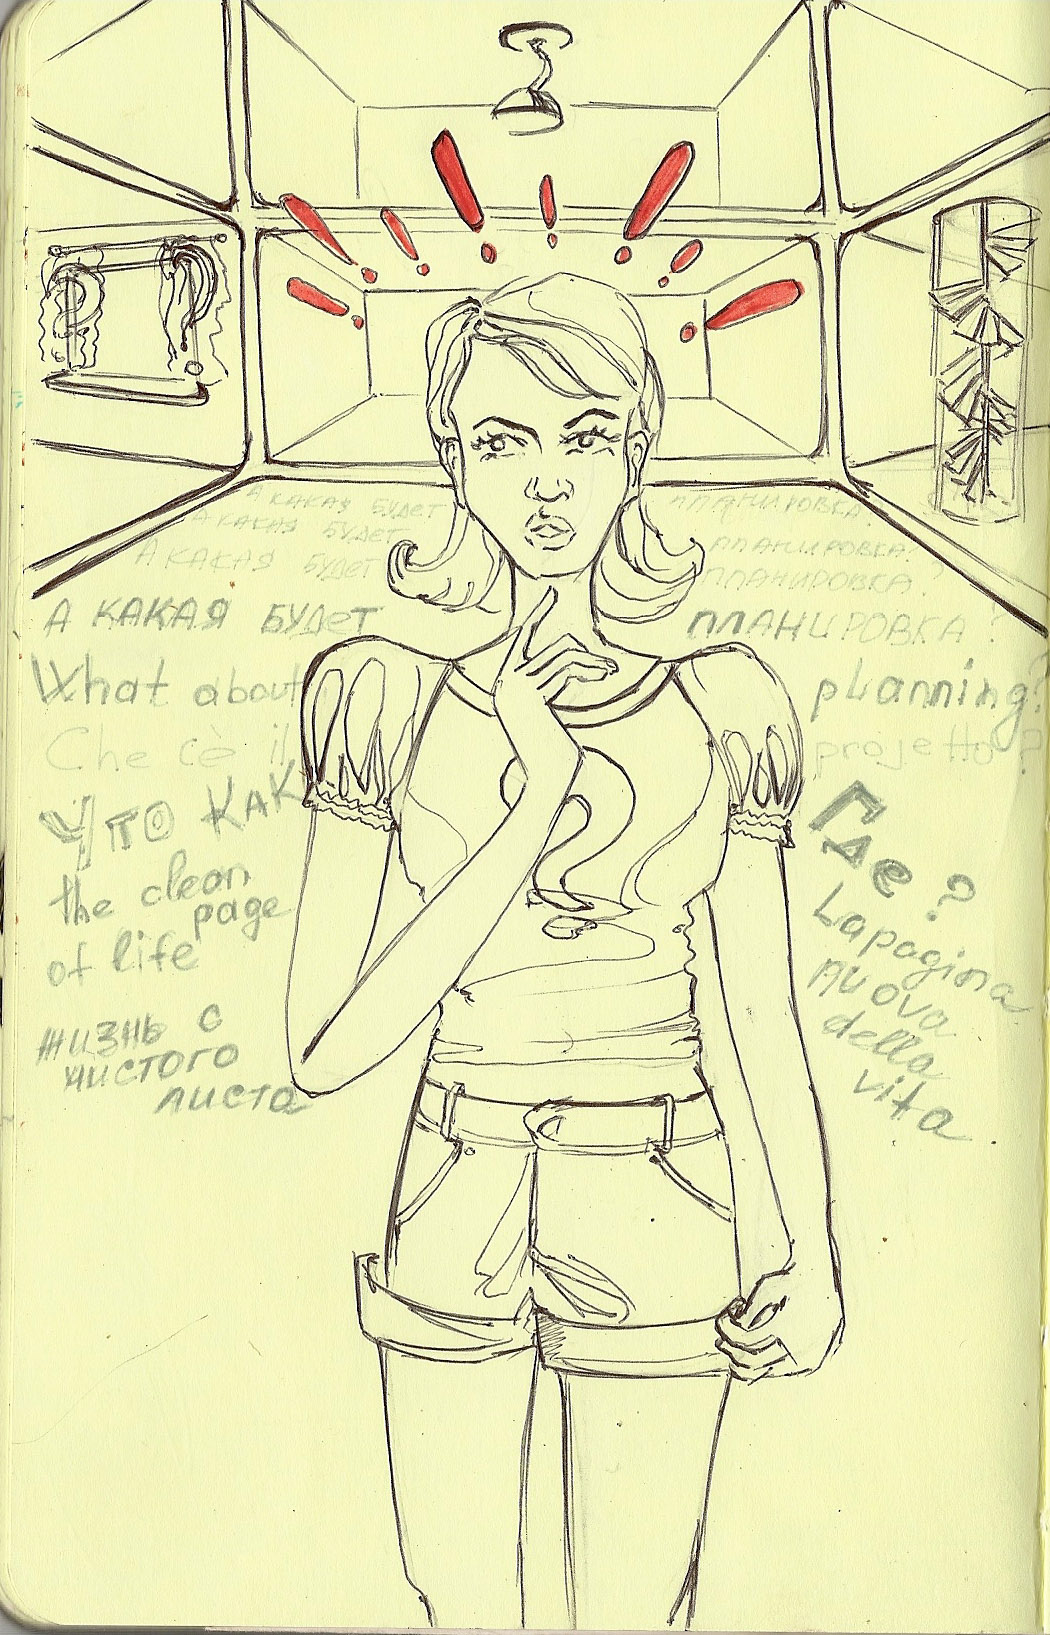 А КАКАЯ БУДЕТ ПЛАНИРОВКА?
А КАКАЯ БУДЕТ ПЛАНИРОВКА?
А КАКАЯ БУДЕТ ПЛАНИРОВКА?
А КАКАЯ БУДЕТ ПЛАНИРОВКА?
What about planning?
Che c'è il progetto?
ЧТО КАК
Где?
the clean
page
of life
La pagina
nuova
della
vita.
жизнь с
чистого
листа